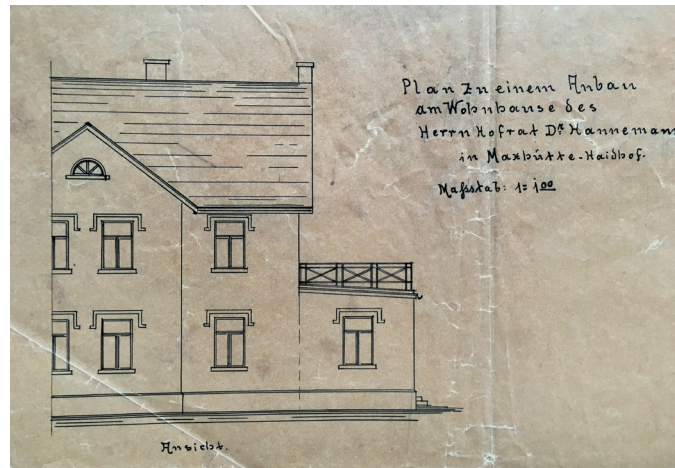 Plan zu einem Anbau
am Wohnhause des
Herrn Hofrat Dr. Hannemann
in Maxhütte-Haidhof.
Maßstab: 1=100
Ansicht.